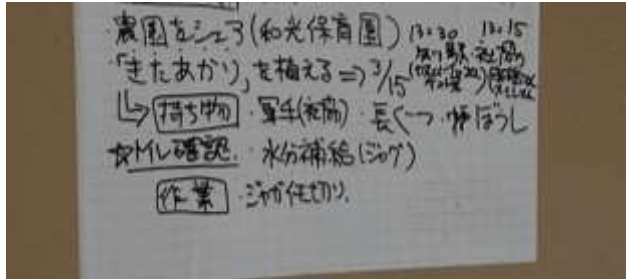 ・農園をシェア(和光保育園) 13:30 13:15
・「きたあかり」を植える⇒3/15
↳持ち物・軍手(社協)・長ぐつ・帽ぼうし
☆トイレ確認.・水分補給(ジャグ)
作業・ジャガ仕切り.